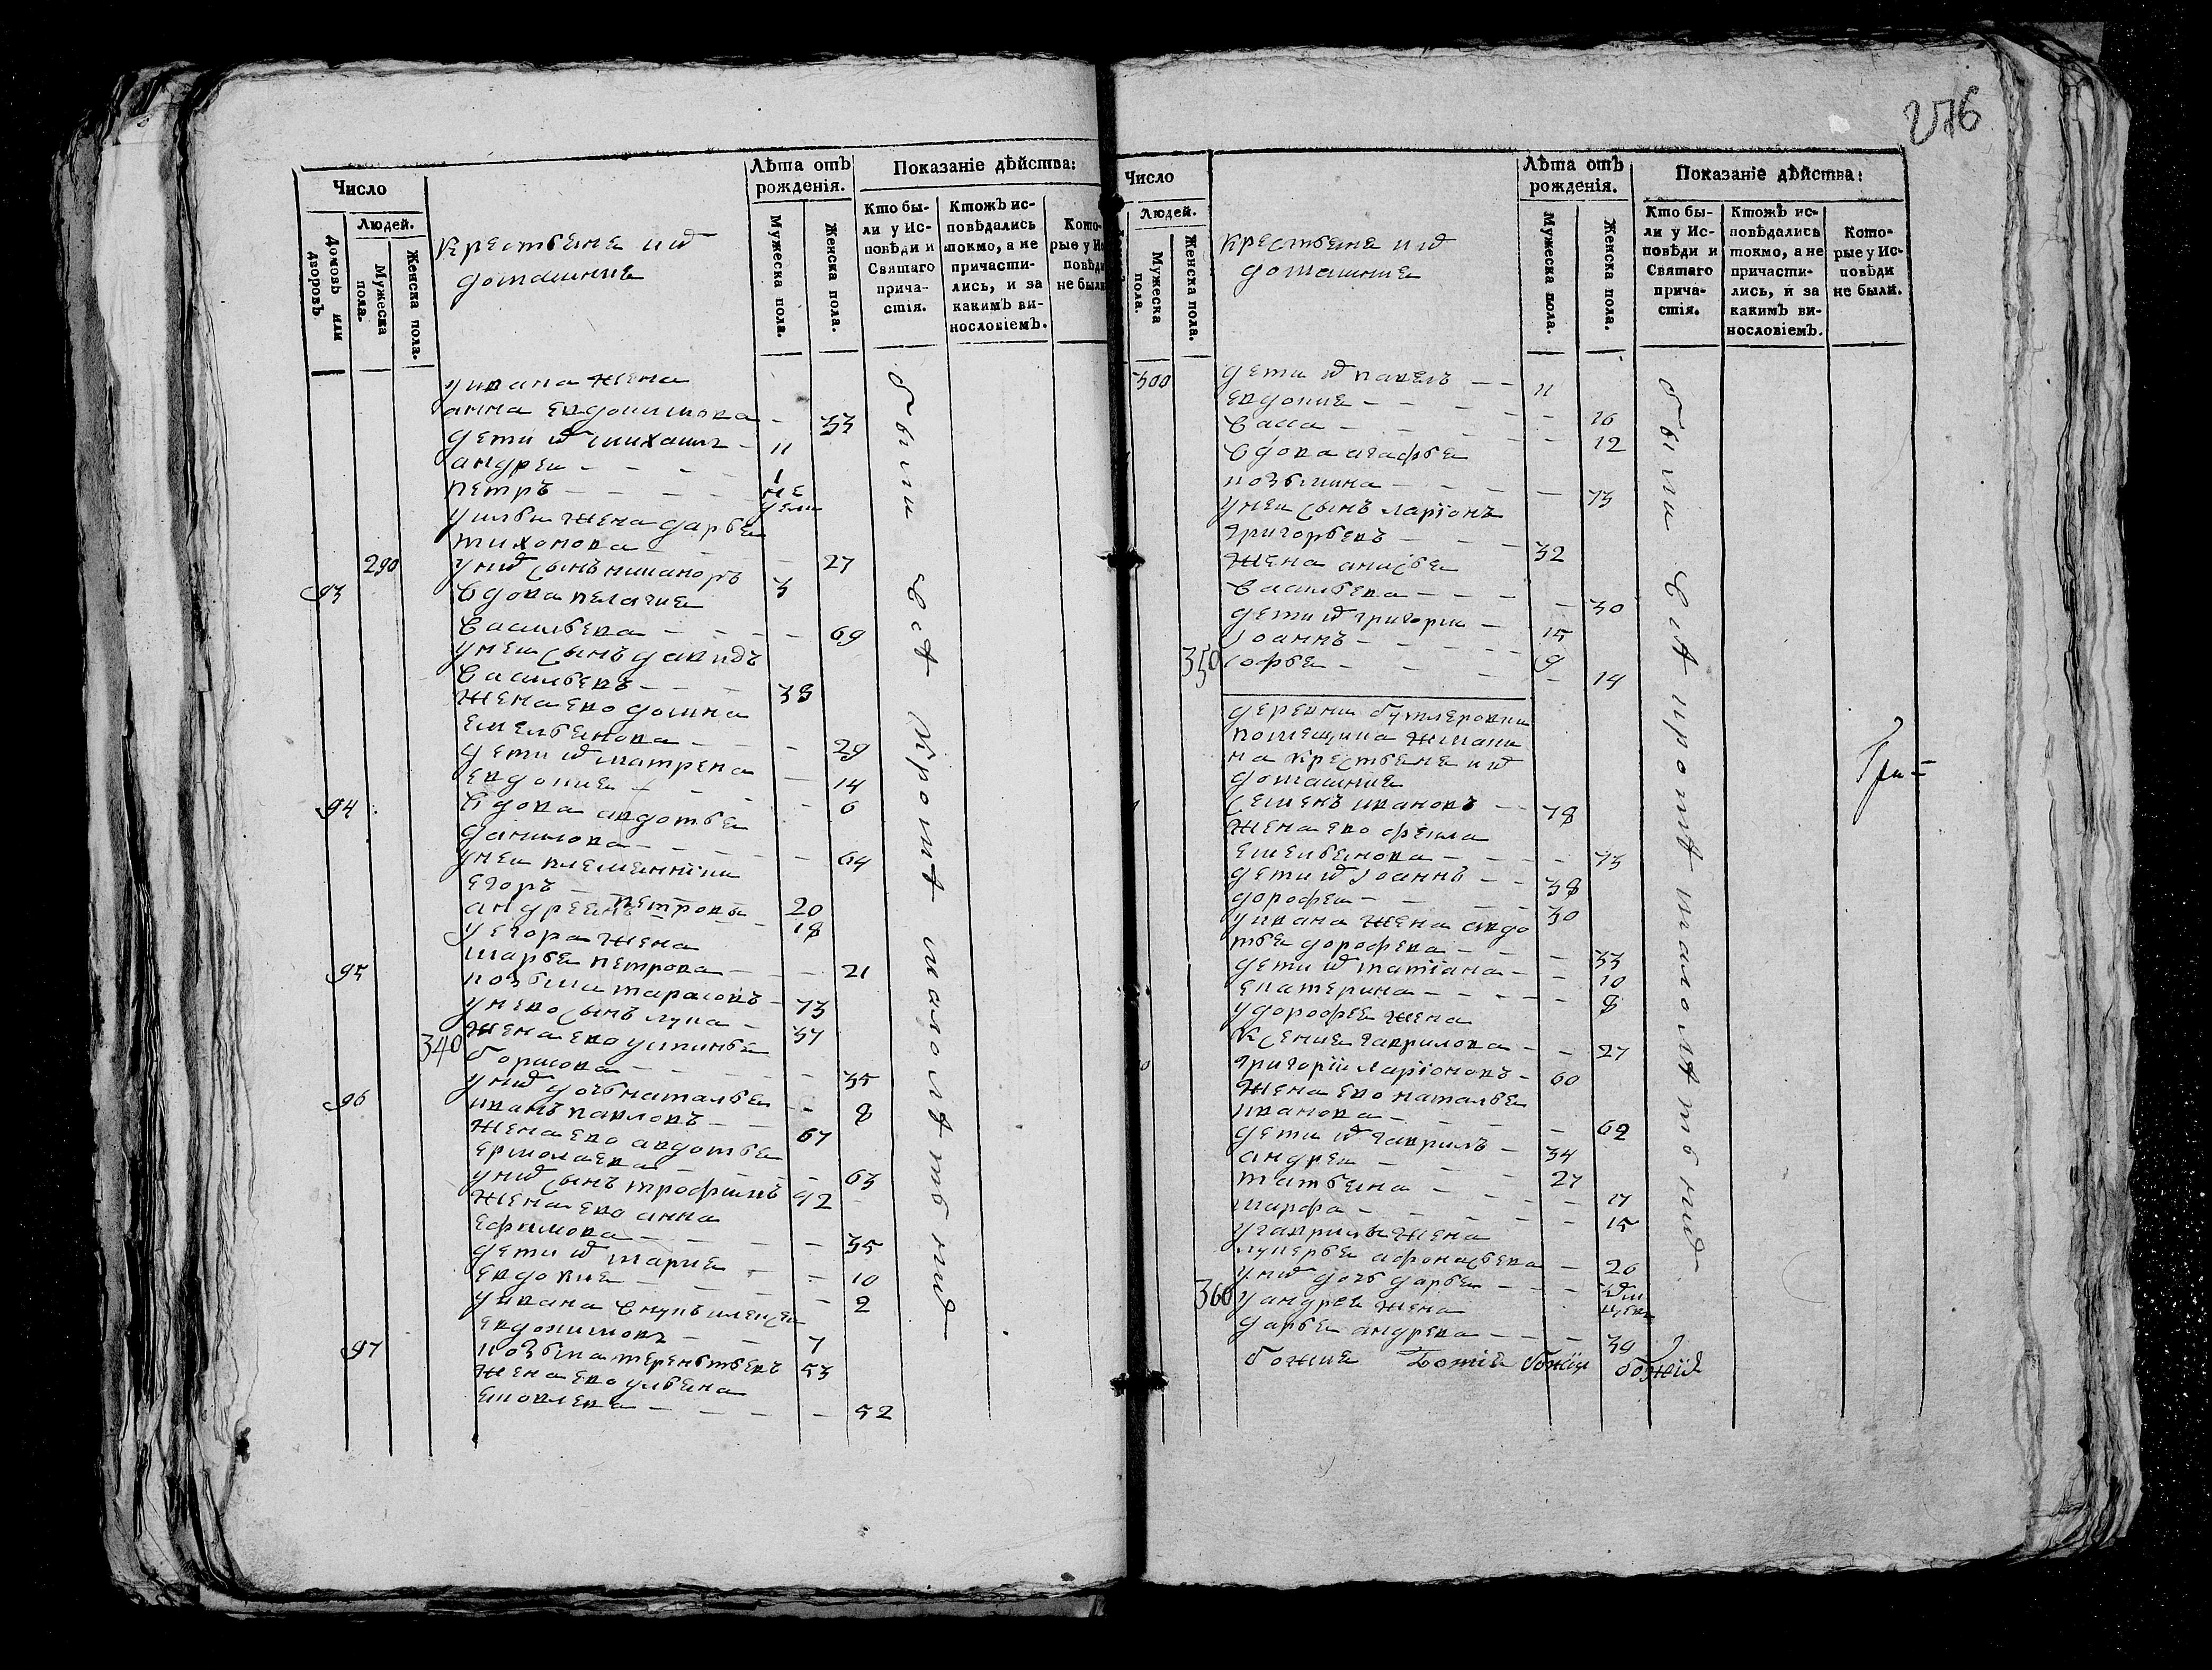 276
Число
Людей.
Домовъ или дворовъ
Мужеска пола.
Женска пола.
крестьяне ихъ
домашние
Лѣта отъ рожденія.
Мужеска пола.
Женска пола.
Показаніе дѣйства:
Кто бы-
ли у Ис-
повѣди и
Святаго
прича-
стія.
Ктожъ ис-
повѣдались
токмо, а не
причасти-
лись, и за
какимъ ви-
нословіемъ.
Кото-
рые у Ис
повѣди
не были
у ивана жена
анна евдокимова - 33
дети их михаилъ - 11
андреи - - - 1
петръ - - - - не
дели
у ильи жена дарья
тихонова - - - 27
290 у них сынъ никаноръ 3
93 вдова пелагия
васильева - - - 69
у неи сынъ давидъ
васильевъ - - - 38
жена ево домна
емельянова - - - 29
дети их матрена - 14
евдокия - - - 6
94 вдова авдотья
данилова - - - 64
у неи племянники
егоръ - 20
андреи петровы - 18
у егора жена
марья петрова - - 21
95 козьма тарасовъ - 73
у нево сынъ лука - 37
340 жена ево устинья
борисова - - - 35
у них дочь наталья - 8
96 иванъ павловъ - - 67
жена ево авдотья
ермолаева - - - 63
у них сынъ трофимъ 42
жена ево анна
ефимова - - - 35
дети их мария - - 10
евдокия - - - 2
у ивана внукъ алексеи
евдокимовъ - - 7
97 козьма терентьевъ 53
жена ево ульяна
яковлева - - - 52
были вся
Число
Людей.
Мужеска пола.
Женска пола.
крестьяне ихъ
домашние
Лѣта отъ рожденія.
Мужеска пола.
Женска пола.
Показаніе дѣйства:
Кто бы-
ли у Ис-
повѣди и
Святаго
прича-
стія.
Ктожъ ис-
повѣдались
токмо, а не
причасти-
лись, и за
какимъ ви-
нословіемъ.
Кото-
рые у Ис-
повѣди
не были.
300 дети их павелъ - - 11
евдокия - - - - 16
васса - - - - 12
вдова агафья
козьмина - - - 73
у неи сынъ ларіонъ
григорьевъ - - - 32
жена анисья
васильева - - - 30
дети их григории - 15
іоаннъ - - - 9
350 софья - - - 14
деревни бутлеровки
помещика
крестьяне их
домашние
семенъ ивановъ - 78
жена ево фекла
емельянова - - - 73
дети их іоаннъ - - 38
дорофеи - - - 30
у ивана жена авдо
тья дорофеева - - 33
дети их татіана - - 10
екатерина - - - - 8
у дорофея жена
ксения гаврилова - - 27
григорій ларіоновъ - 60
жена ево наталья
иванова - - - 62
дети их гаврилъ - 34
андреи - - - 27
татьяна - - - 17
марфа - - - 15
у гаврилы жена
лукерья афонасьева - 26
у них дочь дарья - - -
360 у андрея жена
дарья андреева - - - 30
божия Божіе божіи божіихъ
были вся
Гри=